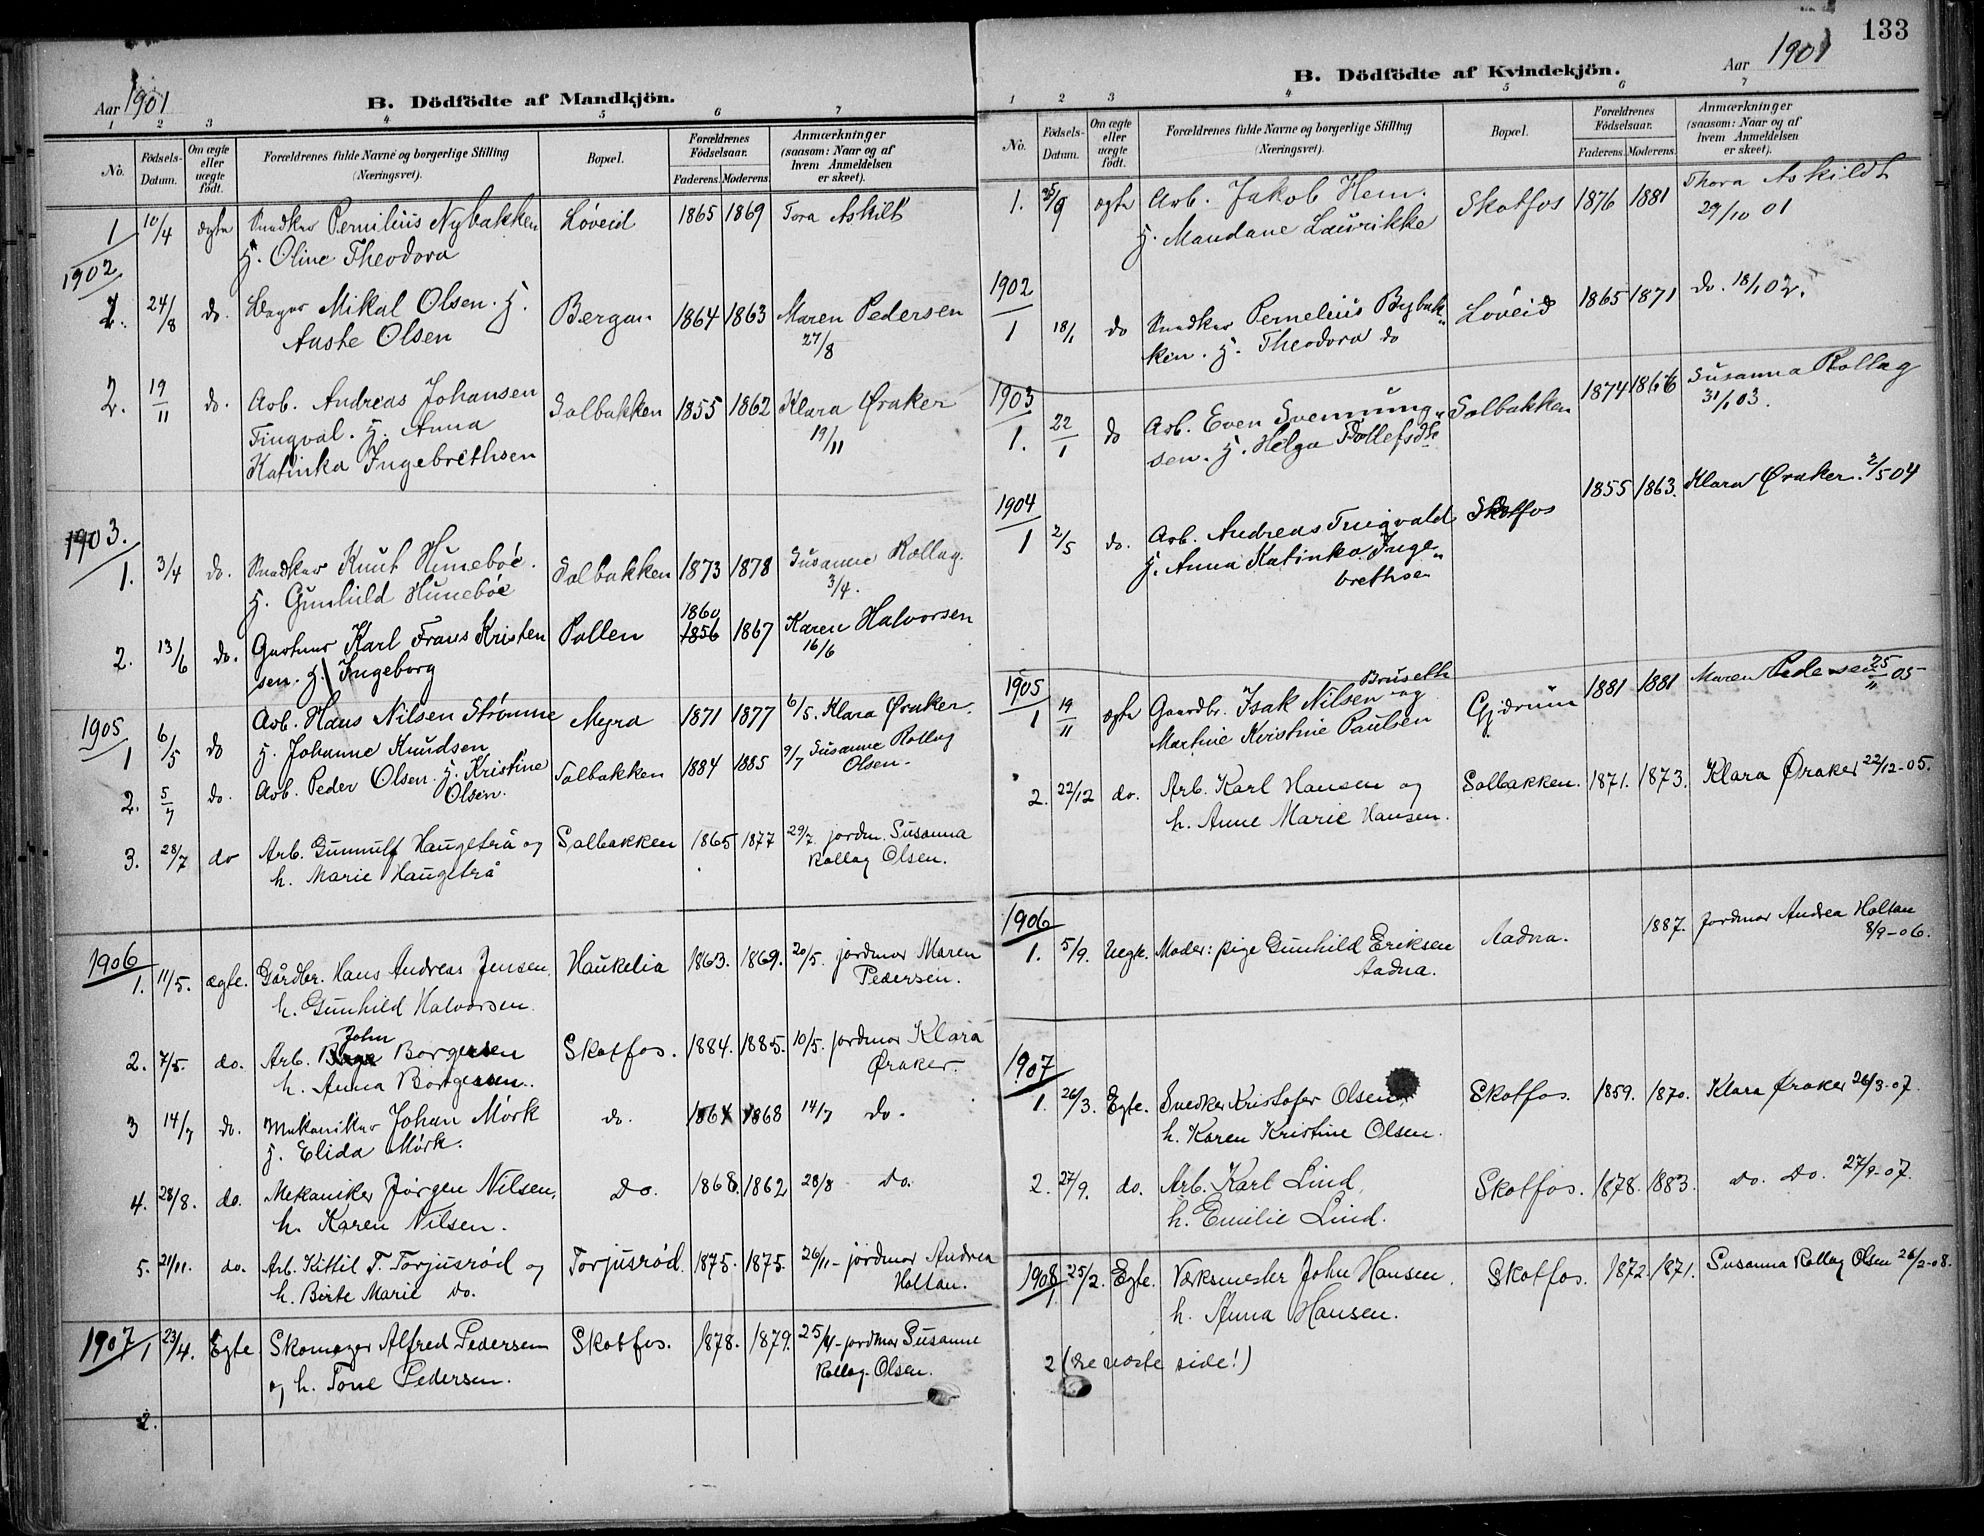 133
Aar 1901
B. Dödfödte af Mandkjön.
1 2 3 4 5 6 7
No.
Födsels-Datum.
Om ægte eller uægte födt.
Forældrenes fulde Navne og borgerlige Stilling
(Næringsvei).
Bopæl.
Forældrenes Födselsaar.
Faderens. Moderens.
Anmærkninger
(saasom: Naar og af
hvem Anmeldelsen
er skeet).
1 10/4 ægte Snedker Pernilius Nybakken Løveid 1865 1869 Tora Askilt
H. Oline Theodora
1902
24/8 do. Mikal Olsen. H. Bergan 1864 1863 Maren Pedersen
Olsen 27/8
2. 19/11 do. Arb. Andreas Johansen Solbakken 1855 1862 Klara Øraker
Tingval. H. Anna 19/11
Katinka Ingebrethsen
1903.
1. 3/4 do. Snedker Knut Hunebøe. Solbakken 1873 1878 Susanne Rollag.
H. Gunhild Hunebøe 3/4.
1860
2. 13/6 do. Gartner Karl Frans Kristen Pollen 1856 1867 Karen Halvorsen
sen. H. Ingeborg 16/6
1905
1 6/5 do Arb. Hans Nilsen Strømme Myra 1871 1877 6/5. Klara Øraker
H. Johanne Knudsen
2. 5/7 do. Arb. Peder Olsen. H. Kristine Solbakken 1884 1885 9/7 Susanne Rollag
Olsen. Olsen.
3. 28/7 do Arb. Gunnulf Haugetrå og Solbakken 1865 1877 29/7. jordm. Susanna
h. Marie Haugetrå Rollag Olsen.
1906
1. 11/5. ægte. Gårdbr. Hans Andreas Jensen, Haukelia 1863. 1869. 20/5. jordmor Maren
h. Gunhild Halvorsen. Pedersen.
John
2. 7/5. do. Arb. Borgersen Skotfos. 1884. 1885. 10/5. jordmor Klara
h. Anna Borgersen. Øraker.
3 14/7 do. Mekaniker Johan Mørk do. 1864 1868 14/7 do.
H. Elida Mørk.
4. 28/8. do. Mekaniker Jørgen Nilsen, Do. 1868. 1862 28/8 do.
h. Karen Nilsen.
5. 21/11. do. Arb. Kittil T. Torjusrød og Torjusrød. 1875. 1875. 26/11 - jordmor Andrea
h. Birte Marie do. Holtan.
1907
1 23/4. Egte Skomager Alfred Pedersen Skotfos. 1878. 1879. 25/4 - jordmor Susanne
og h. Tone Pedersen. Rollag Olsen.
2.
Aar 1901
B. Dödfödte af Kvindekjön.
1 2 3 4 5 6 7
No.
Födsels-Datum.
Om ægte eller uægte födt.
Forældrenes fulde Navne og borgerlige Stilling
(Næringsvei).
Bopæl.
Forældrenes Födselsaar.
Faderens. Moderens.
Anmærkninger
(saasom: Naar og af
hvem Anmeldelsen
er skeet).
1. 25/9 ægte Arb. Jakob Hem. Skotfos 1876 1881 Thora Askildt
H. Mandane Laurikke 29/10 01
1902
1 18/1 do Snedker Pernelius Bybak- Løveid 1865 1871 do. 18/1 02.
ken. H. Theodora do
1903
1. 22/1 do Arb. Even Svennung- Solbakken 1874 1866 Susanna Rollag
sen. H. Helga 31/1 03.
1904
1 2/5 do. Arb. Andreas Tingvald Skotfos 1855 1863. Klara Øraker. 2/5 04
H. Anna Katinka Inge-
brethsen
1905
Bruseth
1 19/11 ægte Gaardbr. Isak Nilsen og Gjerum 1881 1881 Maren Pedersen 25/11 05
Martine Kristine Paulsen
2. 22/12 do. Arb. Karl Hansen og Solbakken. 1871. 1873. Klara Øraker 22/12-05.
h. Anne Marie Hansen.
1906
1. 5/9. Uegte. Moder: pige Gunhild Eriksen Aadna. 1887. Jordmor Andrea Holtan
Aadna. 8/9-06.
1907
1. 26/3. Egte. Snedker Kristofer Olsen, Skotfos. 1859. 1870. Klara Øraker 26/3-07.
h. Karen Kristine Olsen.
2. 27/9. do. Arb. Karl Lind, Skotfos. 1878. 1883. do. Do. 27/9-07.
h. Emilie Lind.
1908
1. 25/2. Egte. Værksmester John Hansen, Skotfos. 1872. 1871. Susanna Rollag Olsen 26/2-08.
h. Anna Hansen.
2 (se næste side!)